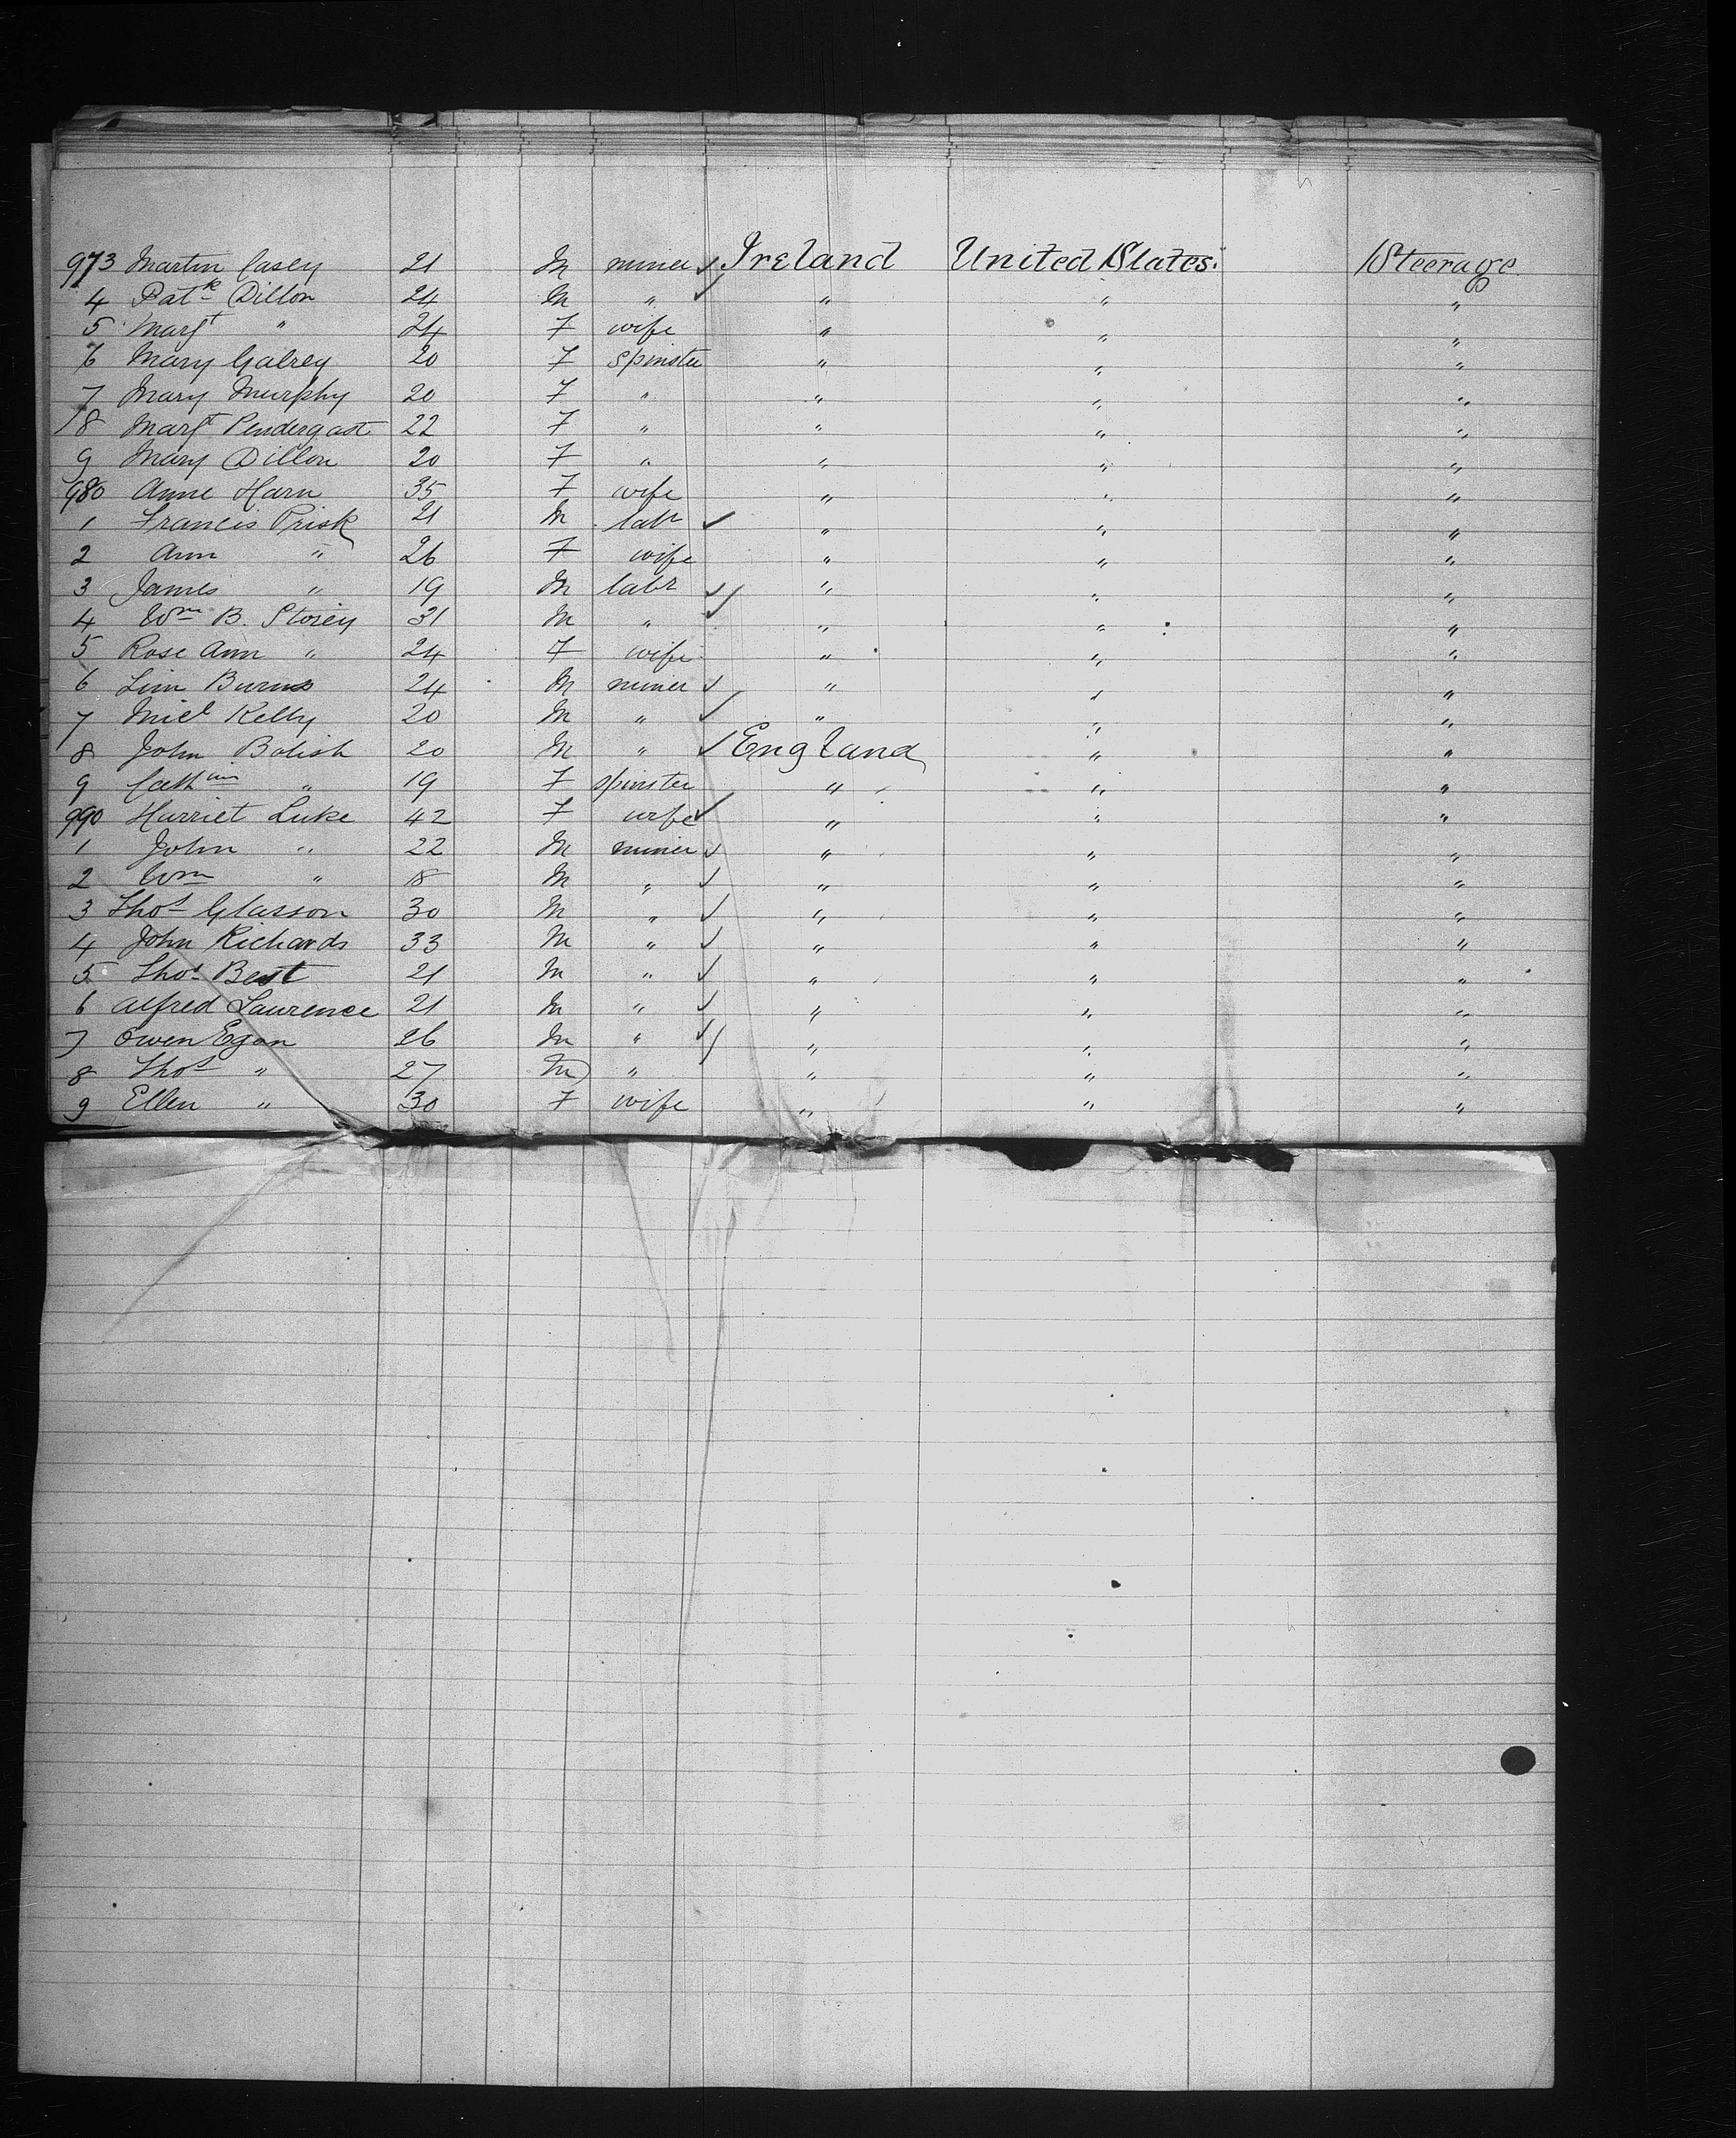 973 Martin Casey 21 M miner ✓ Ireland United States. Steerage
4 Patk Dillon 24 M " ✓ " " "
5 Margt " 24 F wife " " "
6 Mary Galrey 20 F spinster " " "
7 Mary Murphy 20 F " " " "
8 Margt Pendergast 22 F " " " "
9 Mary Dillon 20 F " " " "
980 Anne Harn 35 F wife " " "
1 Francis Prisk 21 M labr ✓ " " "
2 Ann " 26 F wife " " "
3 James " 19 M labr ✓ " " "
4 Wm B. Storey 31 M " ✓ " " "
5 Rose Ann " 24 F wife " " "
6 Burns 24 M miner ✓ " " "
7 Micl Kelly 20 M " ✓ " " "
8 John Bolish 20 M " ✓ England " "
9 Cathain " 19 F spinster " " "
990 Harriet Luke 42 F wife ✓ " " "
1 John " 22 M miner ✓ " " "
2 Wm " 18 M " ✓ " " "
3 Thos Glasson 30 M " ✓ " " "
4 John Richards 33 M " ✓ " " "
5 Thos Best 21 M " ✓ " " "
6 Alfred Laurence 21 M " ✓ " " "
7 Owen Egan 26 M " ✓ " " "
8 Thos " 27 M " ✓ " " "
9 Ellen " 30 F wife " " "